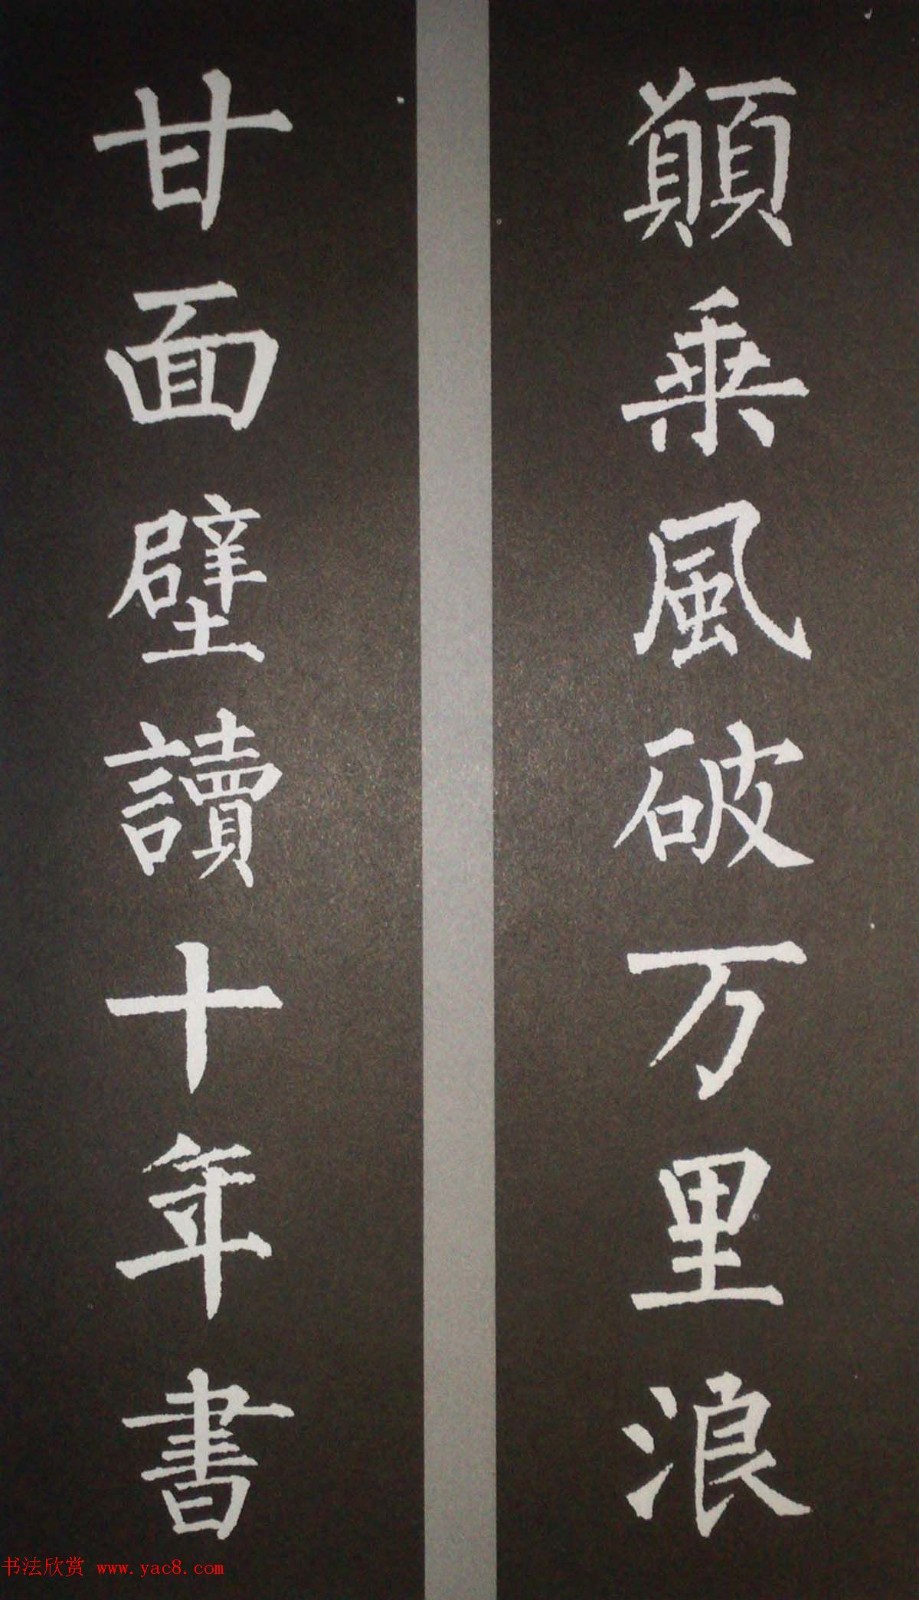 顛乘風破万里浪
甘面壁讀十年書
书法欣赏 www.yac8.com